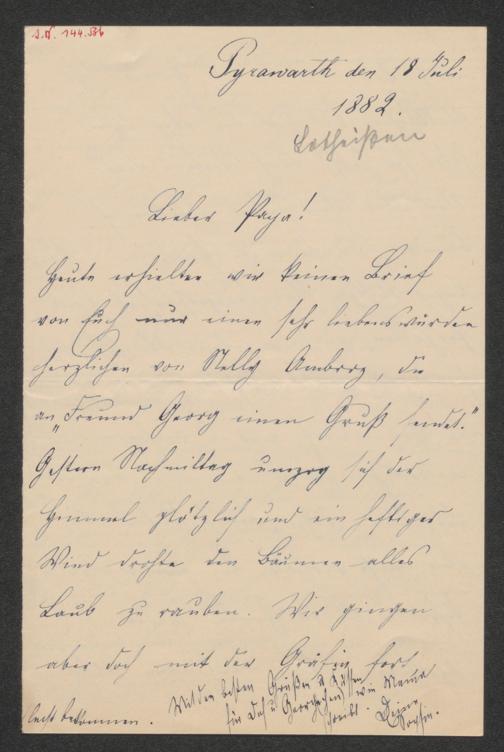 I.N. 144.536
Pyrawarth den 18 Juli
1882.
Lotheißen
Lieber Papa!
Heute erhielten wir keinen Brief
von Euch nur einen sehr liebenswürden
herzlichen von Nelly Amberg, die
an „Freund Georg einen Gruß sendet."
Gestern Nachmittag umzog sich der
Himmel plötzlich und ein heftiger
Wind drohte den Bäumen alles
Laub zu rauben. Wir gingen
aber doch mit der Gräfin fort
Mit den besten Grüßen & Küssen
für Dich u Georg wie Mama
Deine
Sophie.
bekommen.